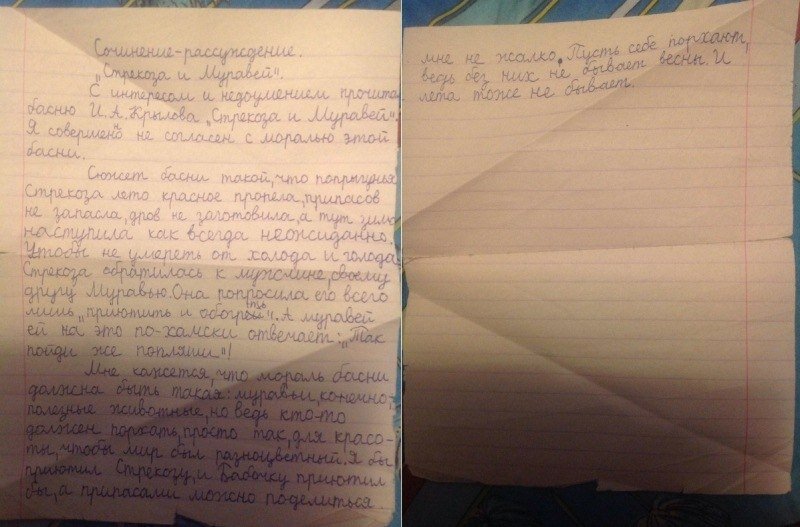 Сочинение-рассуждение.
„Стрекоза и Муравей".
С интересом и недоумением прочита
басню И.А.Крылова „Стрекоза и Муравей".
Я совершенно не согласен с моралью этой
басни.
Сюжет басни такой, что попрыгунья
Стрекоза лето красное пропела, припасов
не запасла, дров не заготовила, а тут зима
наступила как всегда неожиданно.
Чтобы не умереть от холода и голода
Стрекоза обратилась к мужчине, своему
другу Муравью. Она попросила его всего
лишь „приютить и обогреть". А муравей
ей на это по-хамски отвечает: „Так
пойди же попляши"!
Мне кажется, что мораль басни
должна быть такая: муравьи, конечно,
полезные животные, но ведь кто-то
должен порхать, просто так, для красо-
ты, чтобы мир был разноцветный. Я бы
приютил Стрекозу, и Бабочку приютил
бы, а припасами можно поделиться
мне не жалко. Пусть себе порхают,
ведь без них не бывает весны. И
лета тоже не бывает.